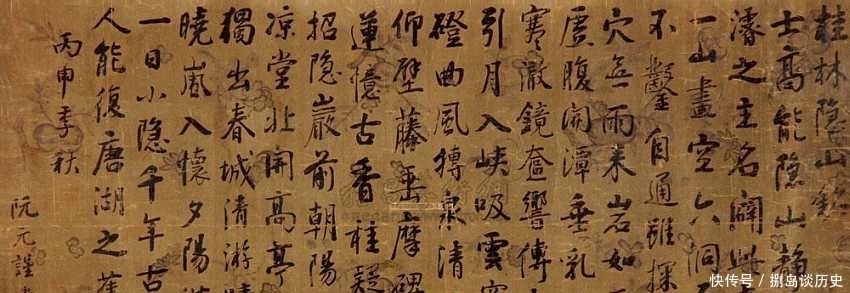 桂林隐山銘
士高能隐山
濬之主名闢
一山畫空六洞
不鑿自通雖探
穴無雨来石如
虛腹開潭垂乳
寒澈鏡奩響傳
引月入峡吸雲
磴曲風摶泉清
仰壁藤垂摩碑
蓮憶古香桂疑
招隐巖前朝陽
凉堂北開高亭
獨出春城清游
曉嵐入懷夕陽
一日小隐千年古
人能復唐湖之
丙申季秋
阮元謹
快传号 / 捌岛谈历史